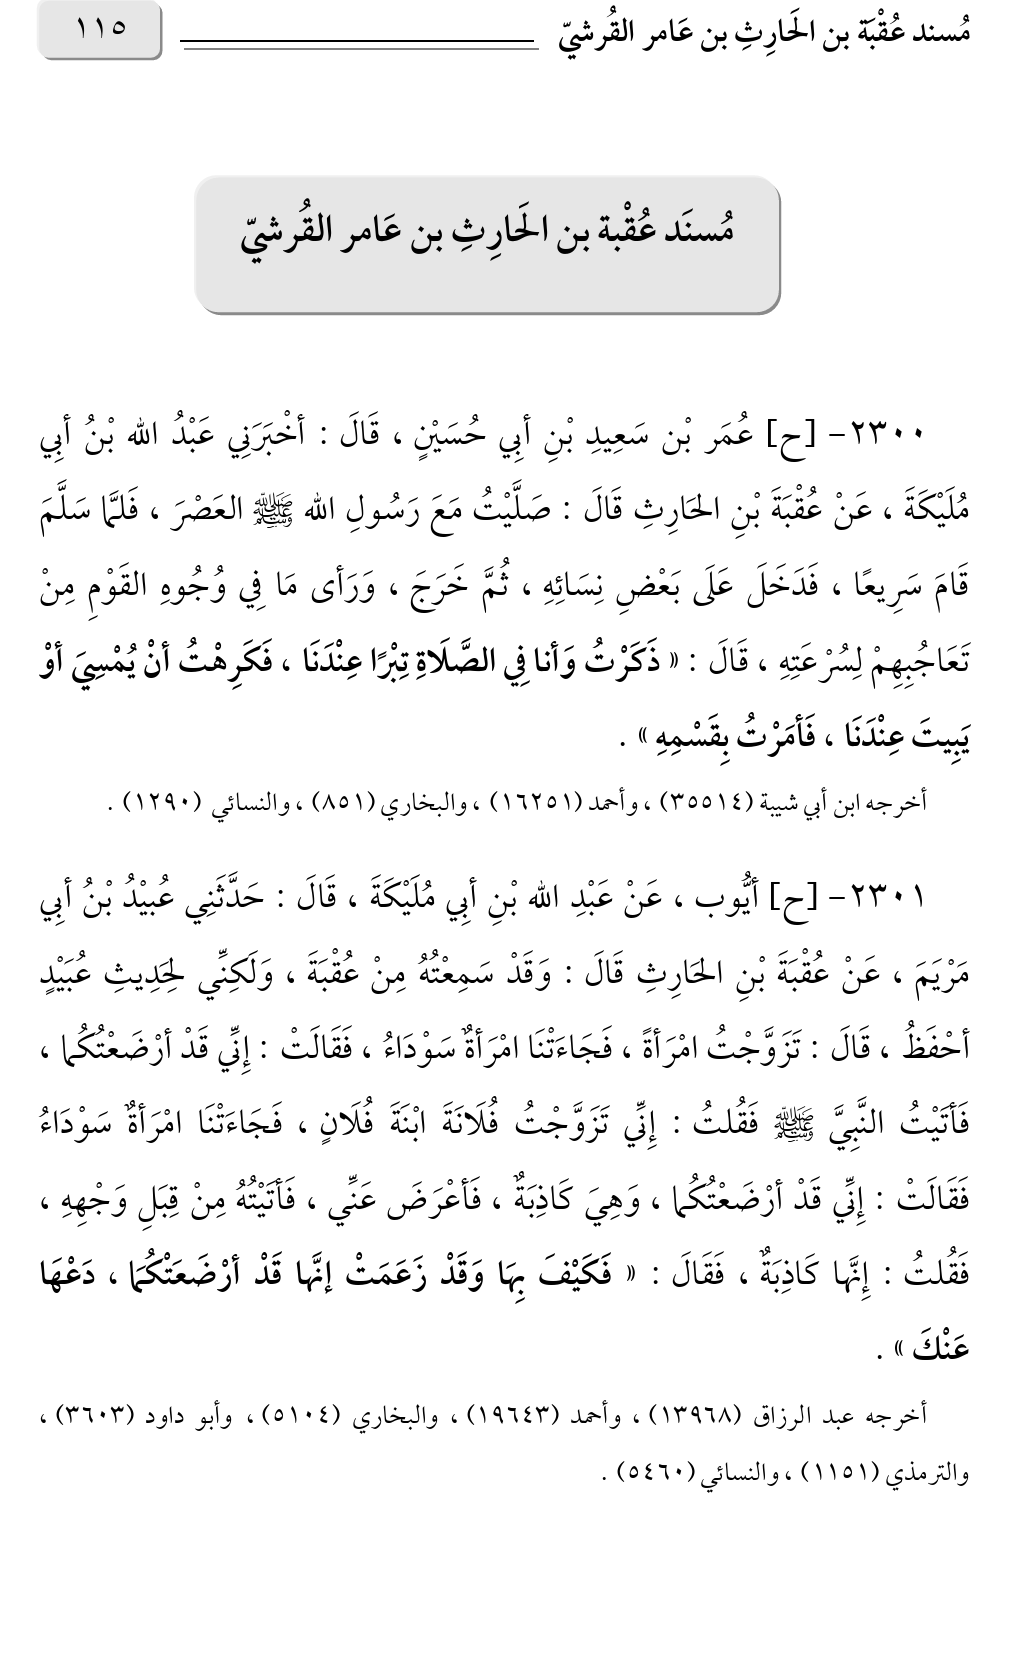 مُسند عُقْبَة بن الحَارِثِ بن عَامر القُرشيّ ١١٥
مُسنَد عُقْبة بن الحَارِثِ بن عَامر القُرشيّ
٢٣٠٠- [ح] عُمَر بْن سَعِيدِ بْنِ أبِي حُسَيْنٍ ، قَالَ : أخْبَرَنِي عَبْدُ الله بْنُ أبِي
مُلَيْكَةَ ، عَنْ عُقْبَةَ بْنِ الحَارِثِ قَالَ : صَلَّيْتُ مَعَ رَسُولِ الله ﷺ العَصْرَ ، فَلمَّا سَلَّمَ
قَامَ سَرِيعًا ، فَدَخَلَ عَلَى بَعْضِ نِسَائِهِ ، ثُمَّ خَرَجَ ، وَرَأى مَا فِي وُجُوهِ القَوْمِ مِنْ
تَعَاجُبِهِمْ لِسُرْعَتِهِ ، قَالَ : « ذَكَرْتُ وَأنا فِي الصَّلَاةِ تِبْرًا عِنْدَنَا ، فَكَرِهْتُ أنْ يُمْسِيَ أوْ
يَبِيتَ عِنْدَنَا ، فَأمَرْتُ بِقَسْمِهِ » .
أخرجه ابن أبي شيبة (٣٥٥١٤) ، وأحمد (١٦٢٥١) ، والبخاري (٨٥١) ، والنسائي (١٢٩٠) .
٢٣٠١- [ح] أيُّوب ، عَنْ عَبْدِ الله بْنِ أبِي مُلَيْكَةَ ، قَالَ : حَدَّثَنِي عُبيْدُ بْنُ أبِي
مَرْيَمَ ، عَنْ عُقْبَةَ بْنِ الحَارِثِ قَالَ : وَقَدْ سَمِعْتُهُ مِنْ عُقْبَةَ ، وَلَكِنِّي لِحَدِيثِ عُبَيْدٍ
أحْفَظُ ، قَالَ : تَزَوَّجْتُ امْرَأةً ، فَجَاءَتْنَا امْرَأةٌ سَوْدَاءُ ، فَقَالَتْ : إنِّي قَدْ أرْضَعْتُكُما ،
فَأتَيْتُ النَّبِيَّ ﷺ فَقُلتُ : إنِّي تَزَوَّجْتُ فُلَانَةَ ابْنَةَ فُلَانٍ ، فَجَاءَتْنَا امْرَأةٌ سَوْدَاءُ
فَقَالَتْ : إنِّي قَدْ أرْضَعْتُكُما ، وَهِيَ كَاذِبَةٌ ، فَأعْرَضَ عَنِّي ، فَأتَيْتُهُ مِنْ قِبَلِ وَجْهِهِ ،
فَقُلتُ : إنَّها كَاذِبَةٌ ، فَقَالَ : « فَكَيْفَ بِهَا وَقَدْ زَعَمَتْ إنَّها قَدْ أرْضَعَتْكُمَا ، دَعْهَا
عَنْكَ » .
أخرجه عبد الرزاق (١٣٩٦٨) ، وأحمد (١٩٦٤٣) ، والبخاري (٥١٠٤) ، وأبو داود (٣٦٠٣) ،
والترمذي (١١٥١) ، والنسائي (٥٤٦٠) .